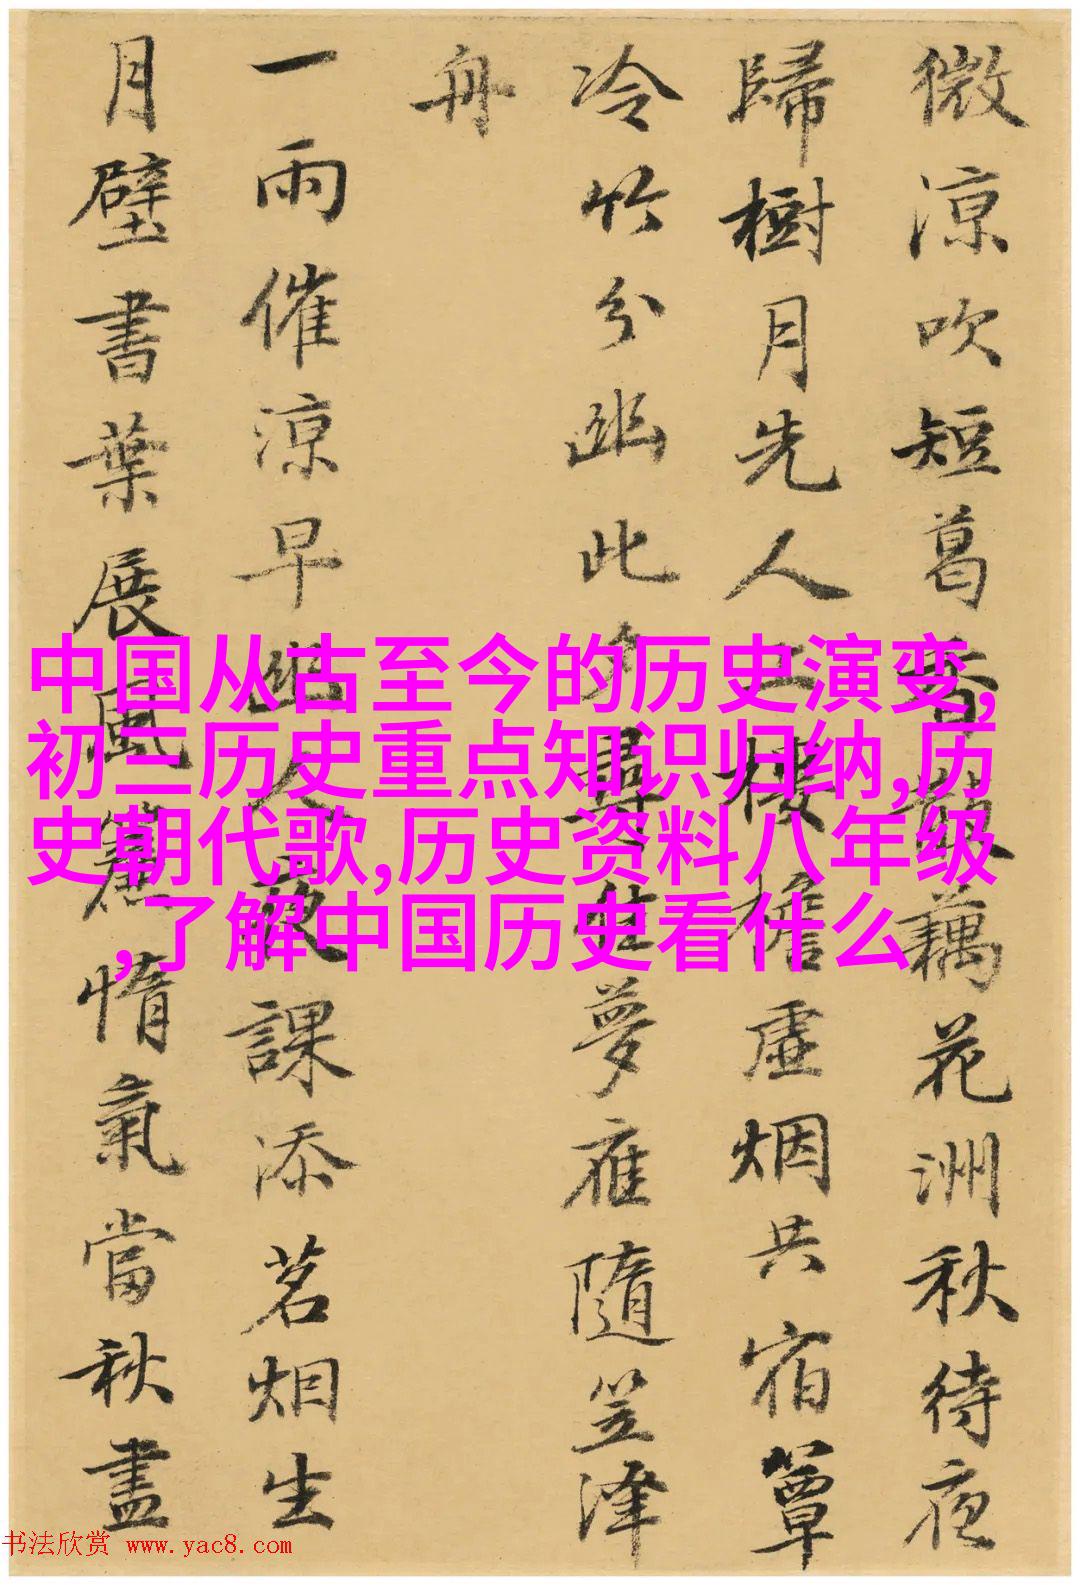 微涼吹短葛香散藕花洲秋待夜
歸樹月先人上樓檐虛烟共宿簟
冷竹分幽此夕尋佳夢應隨笠澤
舟
一雨催涼早幽人夜課添茗烟生
月壁書葉展風窻惰氣當秋盡
中国从古至今的历史演变,
初三历史重点知识归纳,历
史朝代歌,历史资料八年级
,了解中国历史看什么
书法欣赏 www.yac8.com